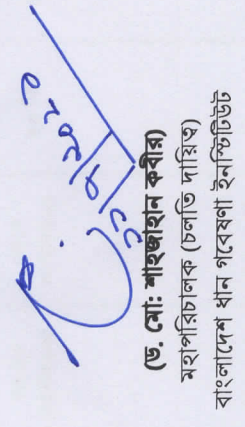 (ড. মোঃ শাহজাহান কবীর)
মহাপরিচালক (চলতি দায়িত্ব)
বাংলাদেশ ধান গবেষণা ইনস্টিটিউট